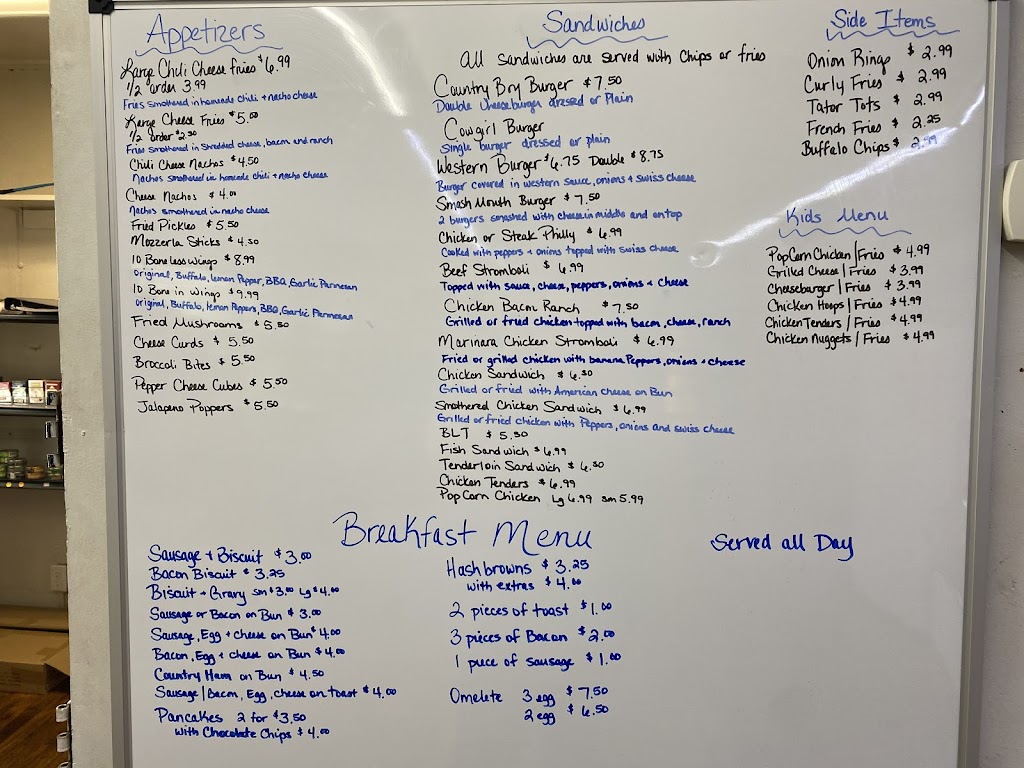 Appetizers
Large Chili Cheese fries $6.99
1/2 order 3.99
Fries smothered in homemade chili + nacho cheese
Large Cheese Fries $5.00
1/2 order $2.50
Fries smothered in shredded cheese, bacon and ranch
Chili Cheese Nachos $4.50
Nachos smothered in homemade chili + nacho cheese
Cheese Nachos $4.00
Nachos smothered in nacho cheese
Fried Pickles $5.50
Mozzerla Sticks $4.50
10 Boneless Wings $8.99
Original, Buffalo, Lemon Pepper, BBQ, Garlic Parmesan
10 Bone in Wings $9.99
Original, Buffalo, Lemon Peppers, BBQ, Garlic Parmesan
Fried Mushrooms $5.50
Cheese Curds $5.50
Broccoli Bites $5.50
Pepper Cheese Cubes $5.50
Jalapeno Poppers $5.50
Sandwiches
All Sandwiches are served with Chips or fries
Country Boy Burger $7.50
Double cheeseburger dressed or Plain
Cowgirl Burger
Single burger dressed or plain
Western Burger $6.75 Double $8.75
Burger covered in western sauce, onions + swiss cheese
Smash Mouth Burger $7.50
2 burgers smashed with cheese in middle and on top
Chicken or Steak Philly $6.99
Cooked with peppers + onions topped with swiss cheese
Beef Stromboli $6.99
Topped with sauce, cheese, peppers, onions + cheese
Chicken Bacon Ranch $7.50
Grilled or fried chicken topped with bacon, cheese, ranch
Marinara Chicken Stromboli $6.99
Fried or grilled chicken with banana Peppers, onions + cheese
Chicken Sandwich $6.50
Grilled or fried with American Cheese on Bun
Smothered Chicken Sandwich $6.99
Grilled or fried chicken with Peppers, onions and swiss cheese
BLT $5.50
Fish Sandwich $6.99
Tenderloin Sandwich $6.50
Chicken Tenders $6.99
PopCorn Chicken Lg 6.99 sm 5.99
Side Items
Onion Rings $2.99
Curly Fries $2.99
Tator Tots $2.99
French Fries $2.25
Buffalo Chips $2.99
Kids Menu
PopCorn Chicken/Fries $4.99
Grilled Cheese/Fries $3.99
Cheeseburger/Fries $3.99
Chicken Hoops/Fries $4.99
Chicken Tenders/Fries $4.99
Chicken Nuggets/Fries $4.99
Breakfast Menu
Served all Day
Sausage + Biscuit $3.00
Bacon Biscuit $3.25
Biscuit + Gravy sm $3.00 Lg $4.00
Sausage or Bacon on Bun $3.00
Sausage, Egg + cheese on Bun $4.00
Bacon, Egg + cheese on Bun $4.00
Country Ham on Bun $4.50
Sausage/Bacon, Egg, cheese on toast $4.00
Pancakes 2 for $3.50
with Chocolate Chips $4.00
Hashbrowns $3.25
with extras $4.00
2 pieces of toast $1.00
3 pieces of Bacon $2.00
1 piece of sausage $1.00
Omelete 3 egg $7.50
2 egg $6.50